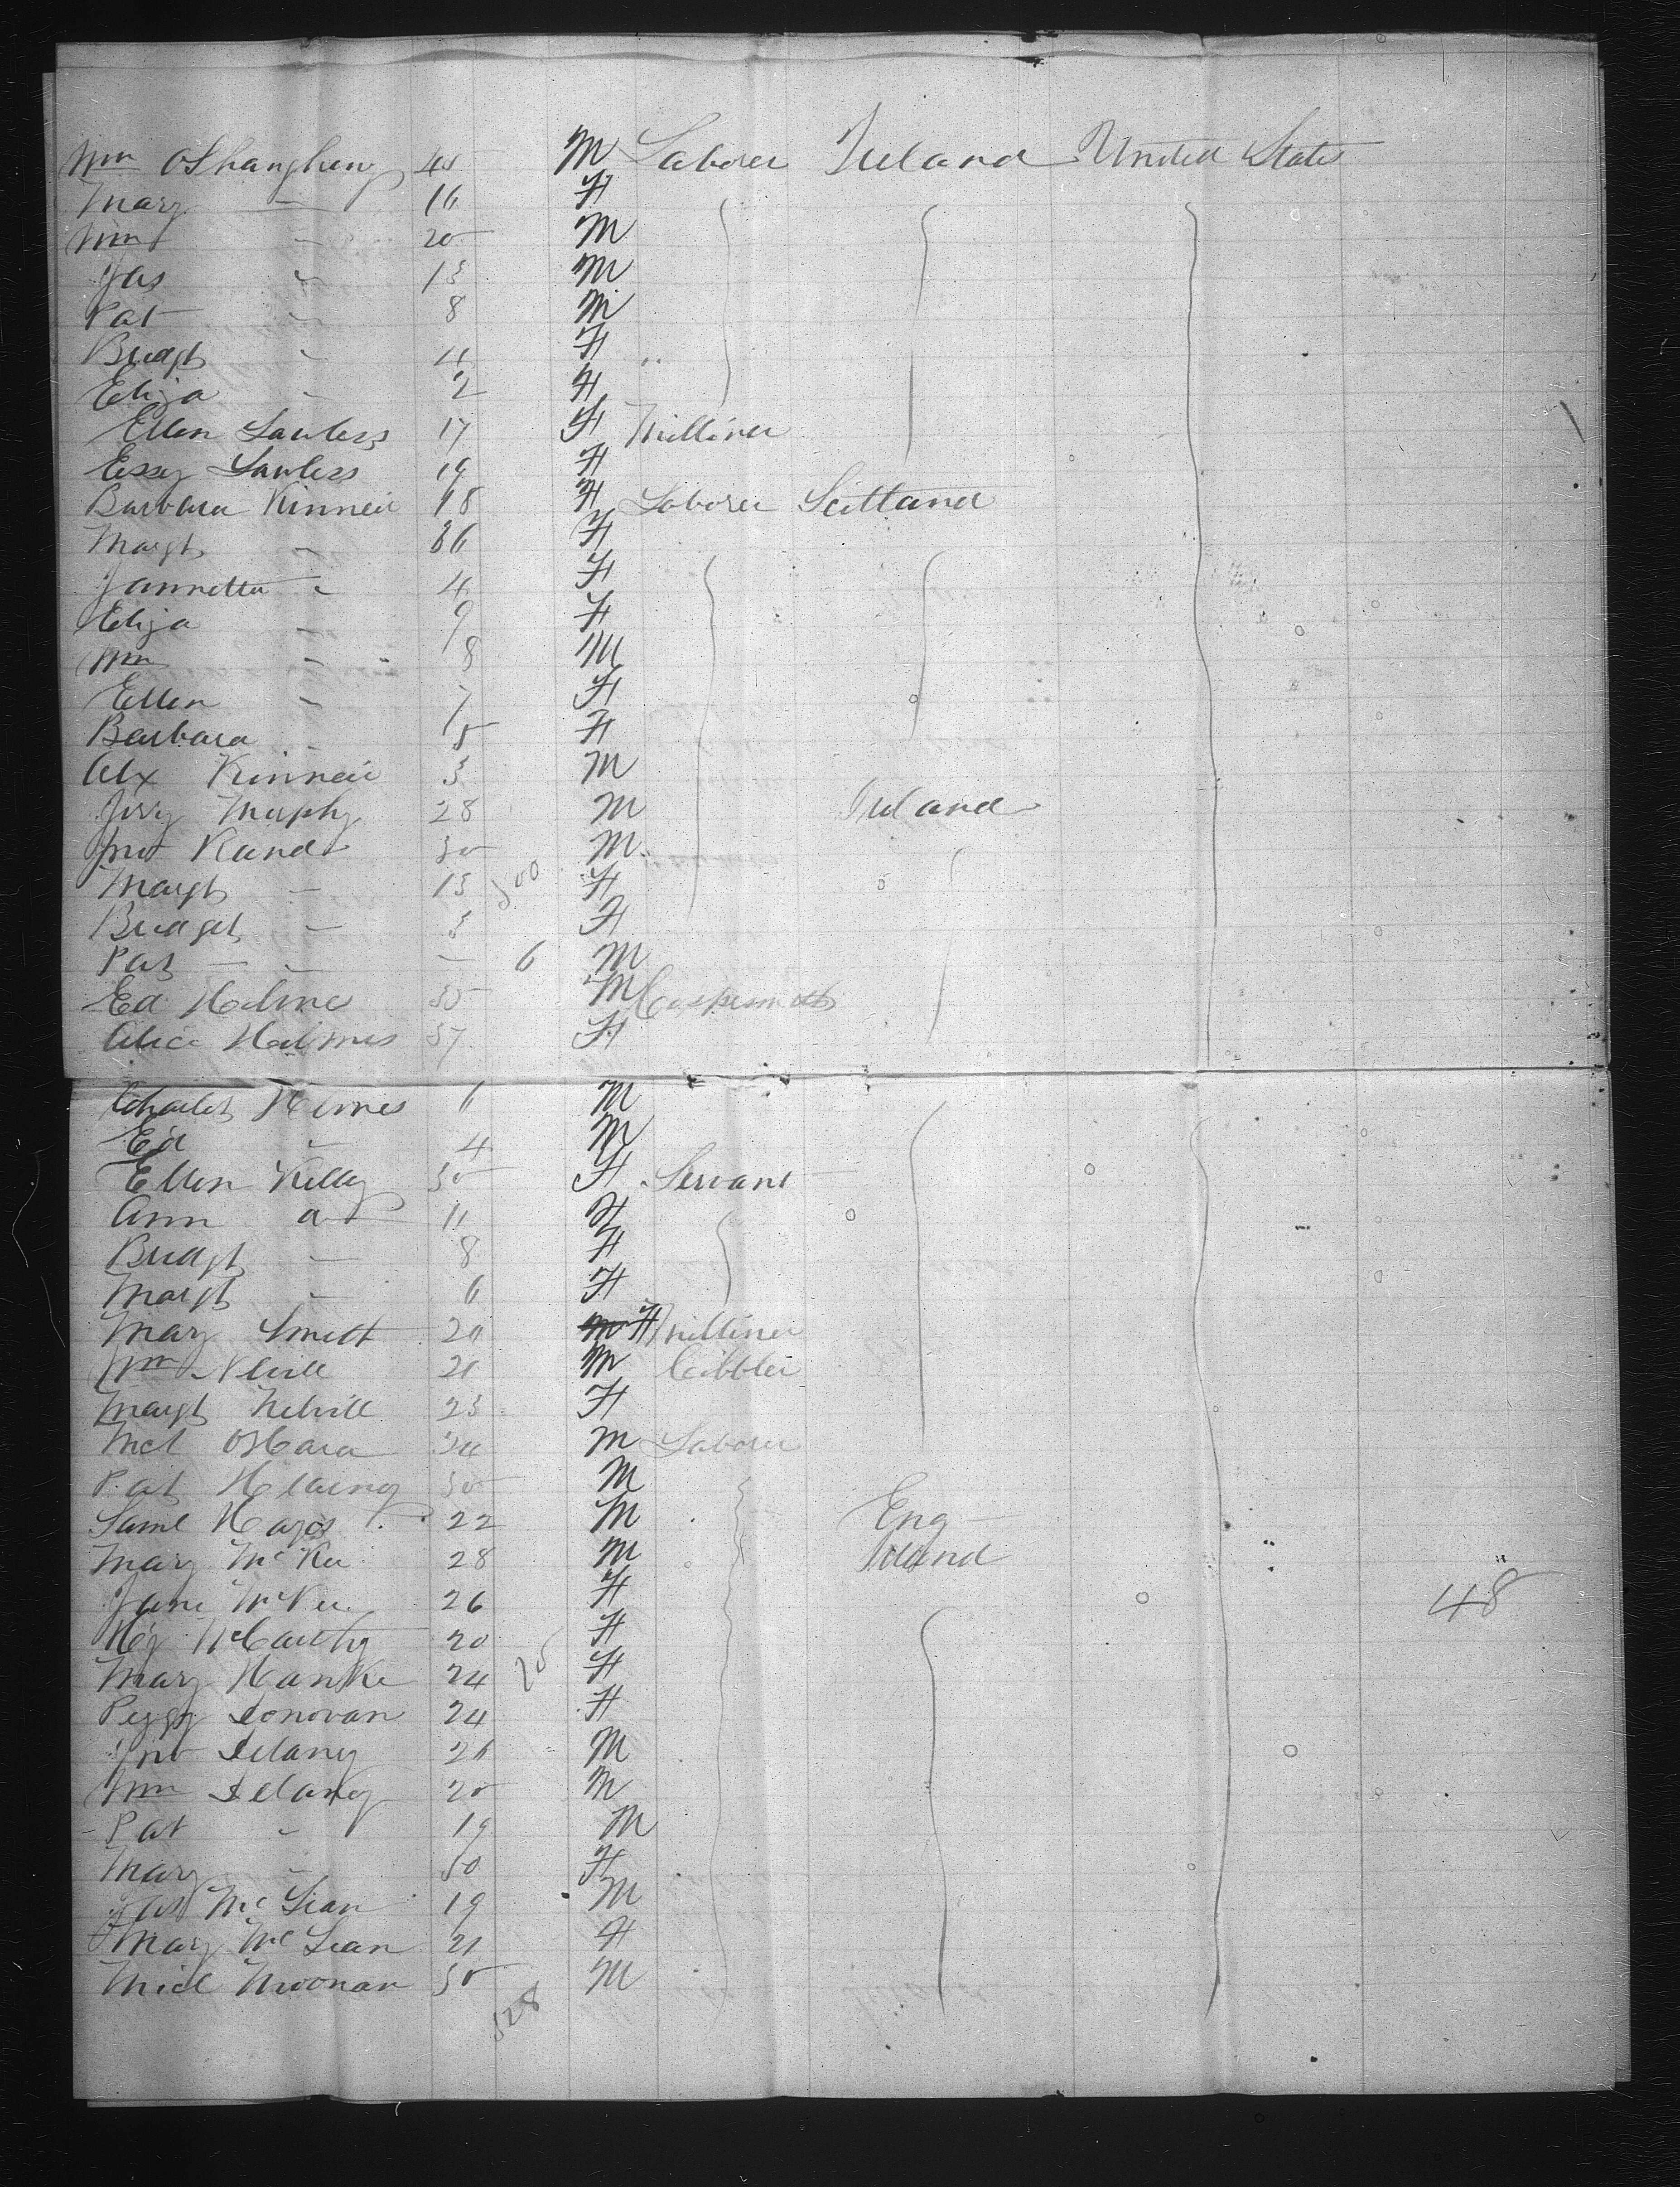 Wm OShangheny 45 M Laborer Ireland United States
Mary — 16 F
Wm — 20 M
Jas — 13 M
Pat — 8 M
Bridgt — 4 F "
Eliza — 2 F
Ellen Lawless 17 F Milliner
Essy Lawless 19 F
Barbara Kinneir 18 F Laborer Scotland
Margt — 36 F
Jannetta — 4 F
Eliza — 9 F
Wm — 8 M
Ellen — 7 F
Barbara — 5 F
Alx Kinneir 3 M
Jery Murphy 28 M Ireland
Jno Kand 30 M
Margt — 13 300 F
Bridget — 3 F
Pat — — 6 M
Ed Holme 35 M
Alice Holmes 37 F
Charles Holmes 6 M
Ed — 4 M
Ellen Kelly 30 F Servant
Ann do 11 F
Bridgt — 8 F
Margt — 6 F
Mary Smith 20 F Milliner
Wm 21 M Cobbler
Margt Nelvill 23 F
Mcl OHara 24 M Laborer
Pat 30 M
Saml Hayes 22 M Eng
Mary McKee 28 M Ireland
Jane McKee 26 F 48
McCarthy 20 F
Mary Hanke 24 25 F
Peggy Donovan 24 F
Jno Delany 26 M
Wm Delany 20 M
Pat — 19 M
Mary — 50 F
Jas McLean 19 M
Mary McLean 21 F
Micl Noonan 30 M
328